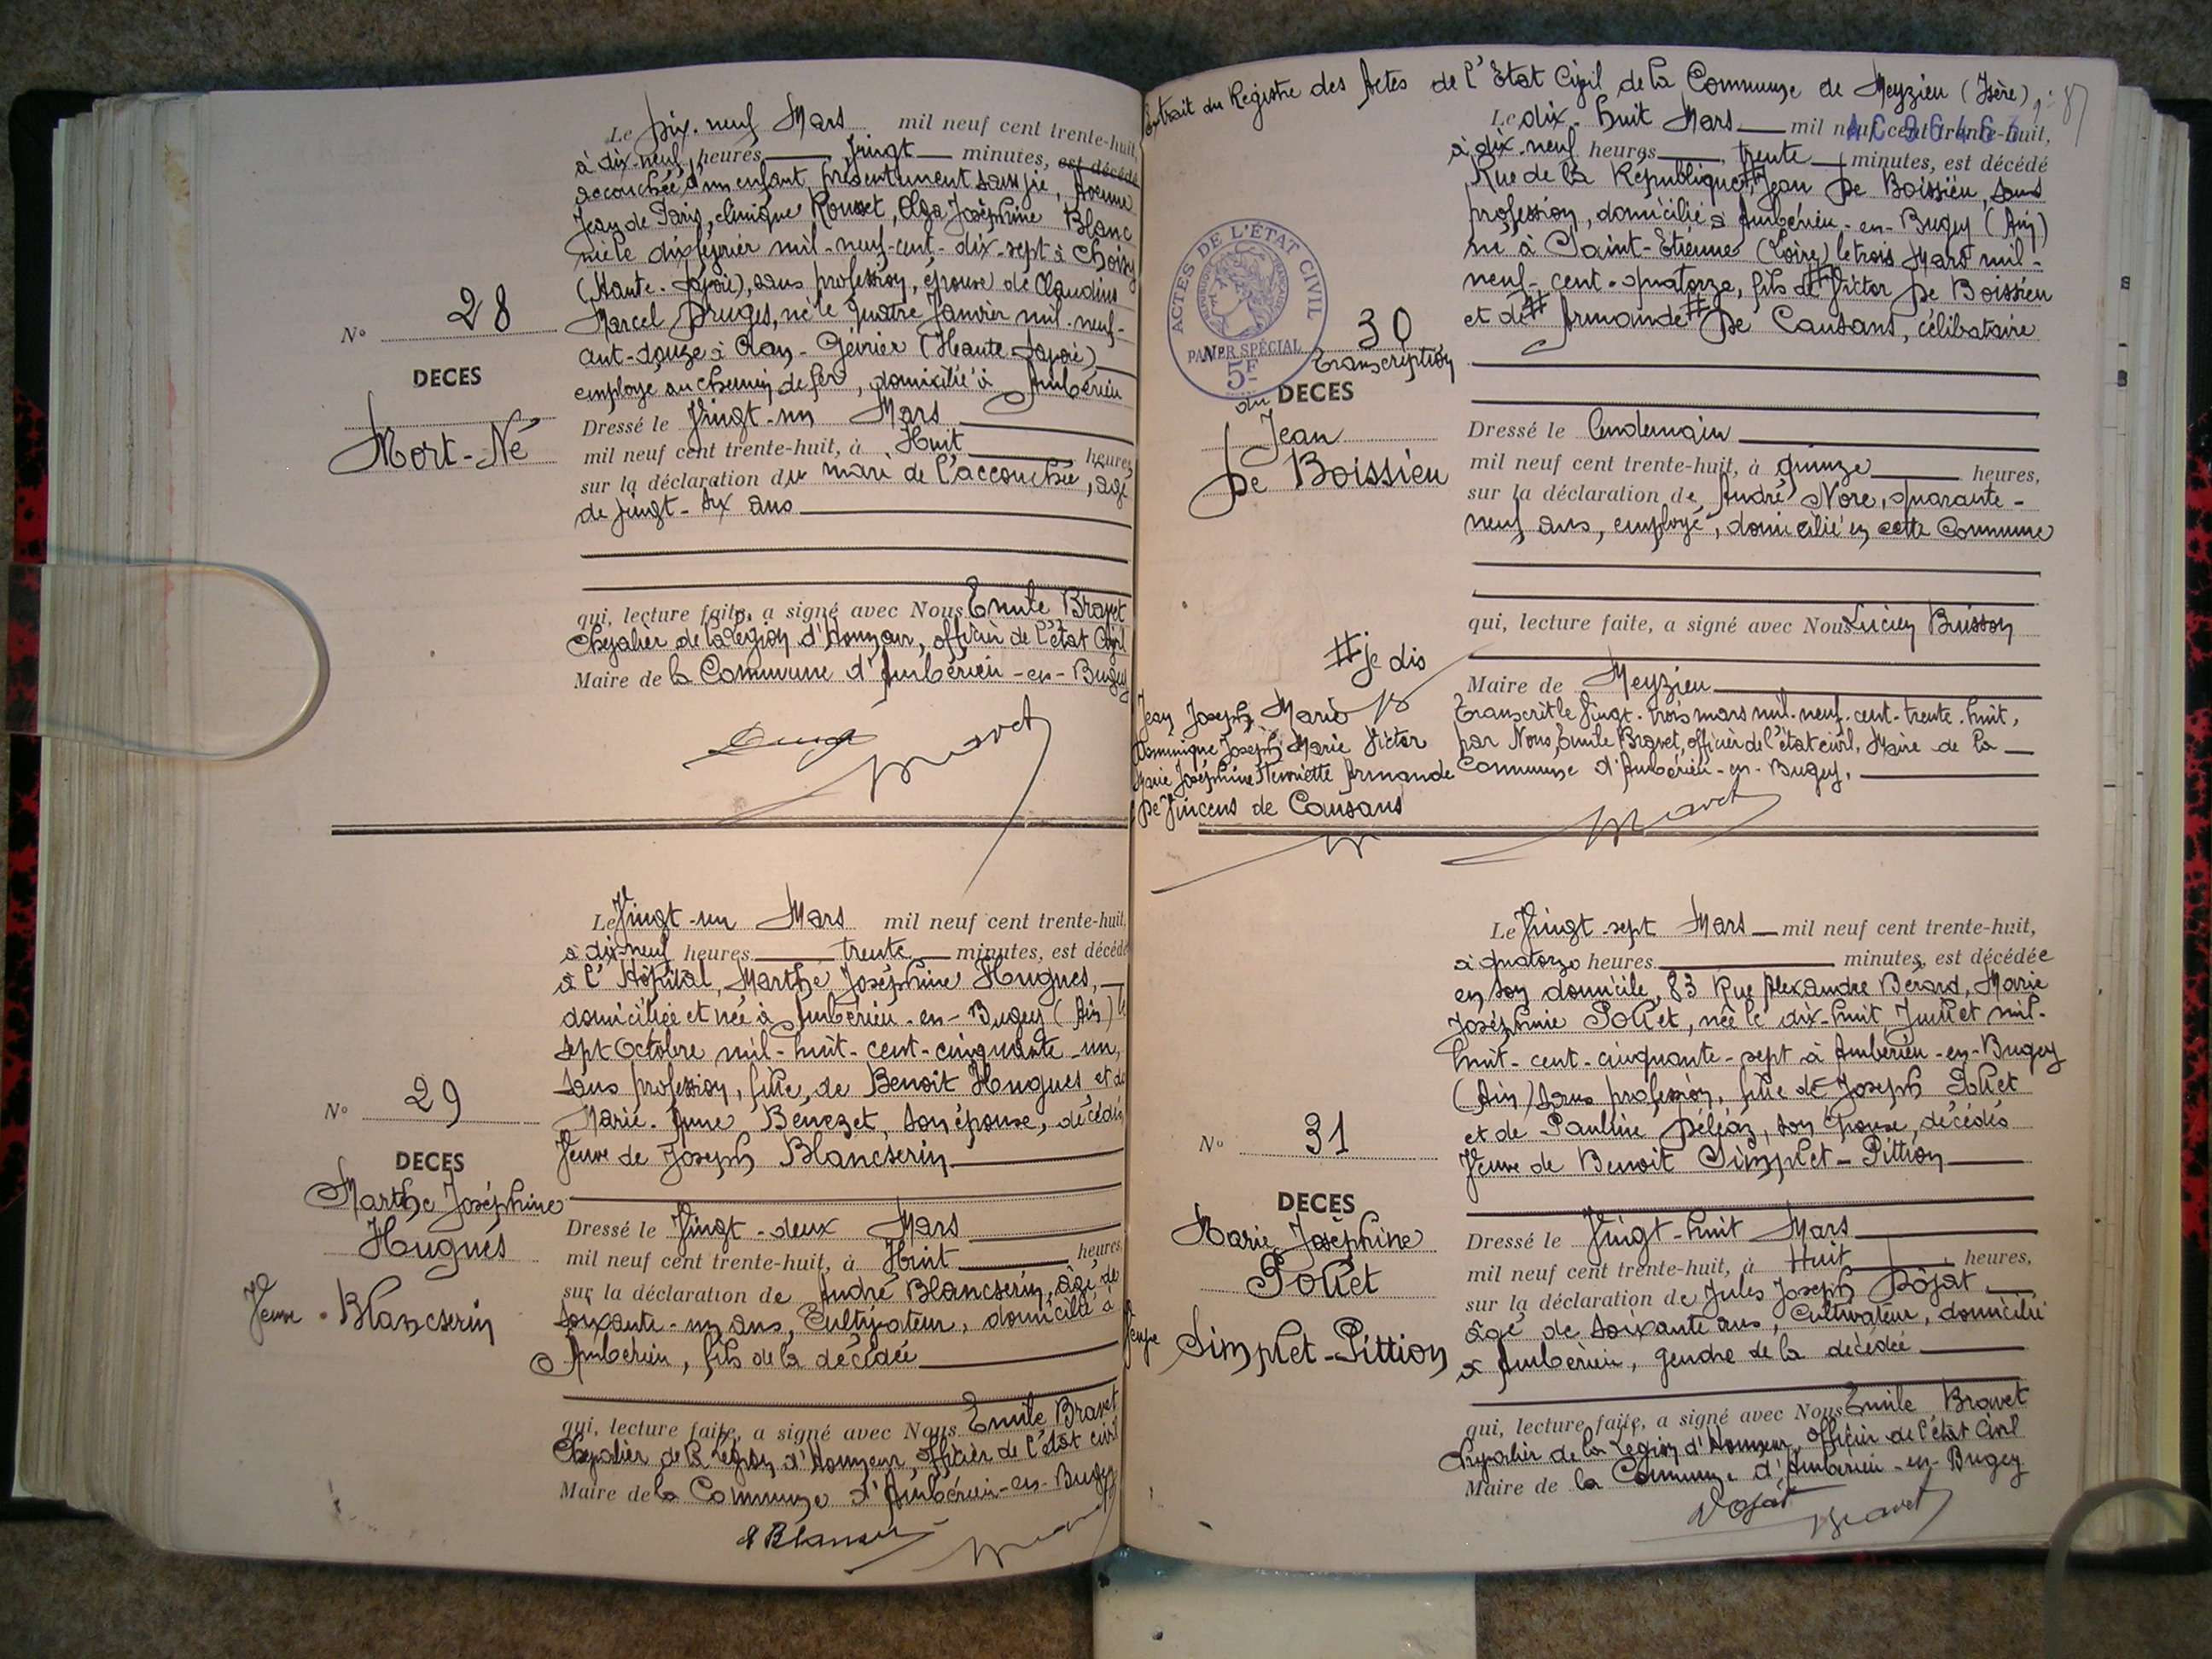 N° 28
DECES
Mort-Né
Le Dix-neuf Mars mil neuf cent trente-huit,
à dix-neuf heures vingt minutes, est décédé
accouchée d'un enfant présentement sans vie, Avenue
Jean de Paris, clinique Rousset, Olga Joséphine Blanc
née le dix février mil-neuf-cent-dix-sept à Choisy
(Haute-Savoie), sans profession, épouse de Claudius
Marcel Druges, né le quatre Janvier mil-neuf-
cent-douze à Cran-Gévrier (Haute Savoie)
employé au chemin de fer, domicilié à Ambérieu
Dressé le Vingt-un Mars
mil neuf cent trente-huit, à Huit heures
sur la déclaration du mari de l'accouchée, âgé
de vingt-six ans
qui, lecture faite, a signé avec Nous Emile Bravet
Chevalier de la Légion d'Honneur, officier de l'état Civil
Maire de la Commune d'Ambérieu-en-Bugey
Bravet
N° 29
DECES
Marthe Joséphine
Hugues
Veuve Blancserin
Le Vingt-un Mars mil neuf cent trente-huit,
à dix-neuf heures trente minutes, est décédé
à l'Hôpital, Marthe Joséphine Hugues,
domiciliée et née à Ambérieu-en-Bugey (Ain) le
sept Octobre mil-huit-cent-cinquante-un,
sans profession, fille de Benoit Hugues et de
Marie-Anne Benezet, son épouse, décédés
Veuve de Joseph Blancserin
Dressé le Vingt-deux Mars
mil neuf cent trente-huit, à Huit heures
sur la déclaration de André Blancserin, âgé de
soixante-un ans, Cultivateur, domicilié à
Ambérieu, fils de la décédée
qui, lecture faite, a signé avec Nous Emile Bravet
Chevalier de la Légion d'Honneur, officier de l'état civil
Maire de la Commune d'Ambérieu-en-Bugey
Extrait du Registre des Actes de l'Etat Civil de la Commune de Meyzieu (Isère)
87
ACTES DE L'ÉTAT CIVIL
PAPIER SPÉCIAL
5F
30
Transcription
du DECES
Jean
De Boissieu
Le dix-huit Mars mil neuf cent trente-huit,
à dix-neuf heures, trente minutes, est décédé
Rue de la République, # Jean De Boissieu, sans
profession, domicilié à Ambérieu-en-Bugey (Ain)
né à Saint-Etienne (Loire) le trois Mars mil-
neuf-cent-quatorze, fils de # Victor De Boissieu
et de # Armande # De Causans, célibataire
Dressé le lendemain
mil neuf cent trente-huit, à quinze heures,
sur la déclaration de André Nore, quarante-
neuf ans, employé, domicilié en cette Commune
qui, lecture faite, a signé avec Nous Lucien Buisson
Maire de Meyzieu
Transcrit le Vingt-trois mars mil-neuf-cent-trente-huit,
par Nous, Emile Bravet, officier de l'état civil, Maire de la
Commune d'Ambérieu-en-Bugey.
Bravet
# je dis
Jean Joseph Marie
Dominique Joseph Marie Victor
Marie Joséphine Henriette Armande
De Vincens de Causans
N° 31
DECES
Marie Joséphine
Pollet
Veuve Simplet-Pittion
Le Vingt-sept Mars mil neuf cent trente-huit,
à quatorze heures minutes, est décédée
en son domicile, 83 Rue Alexandre Bérard, Marie
Joséphine Pollet, née le dix-huit Juillet mil-
huit-cent-cinquante-sept à Ambérieu-en-Bugey
(Ain) sans profession, fille de Joseph Pollet
et de Pauline Péléaz, son épouse, décédés
Veuve de Benoit Simplet-Pittion
Dressé le Vingt-huit Mars
mil neuf cent trente-huit, à Huit heures,
sur la déclaration de Jules Joseph Dôjat
âgé de soixante ans, Cultivateur, domicilié
à Ambérieu, gendre de la décédée
qui, lecture faite, a signé avec Nous Emile Bravet
Chevalier de la Légion d'Honneur, officier de l'état Civil
Maire de la Commune d'Ambérieu-en-Bugey
Dojat Bravet